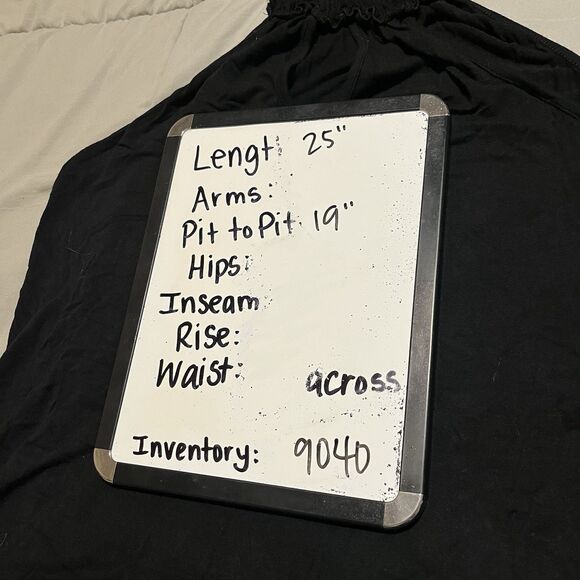 Lengt: 25"
Arms:
Pit to Pit: 19"
Hips:
Inseam
Rise:
Waist: across
Inventory: 9040